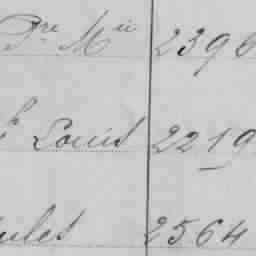 Pre Mii 2396
Louis 2219
ules 2564